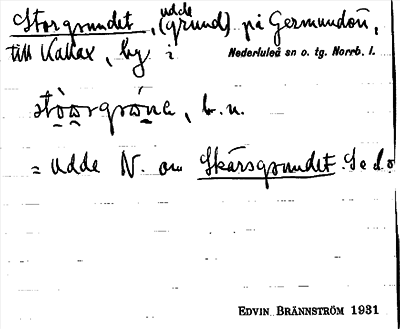 Storgrundet, udde (grund) på Germundön,
till Kallax, by i Nederluleå sn o. tg. Norrb. l.
b. n.
= Udde N. om Skärsgrundet. Se d. o
EDVIN BRÄNNSTRÖM 1931